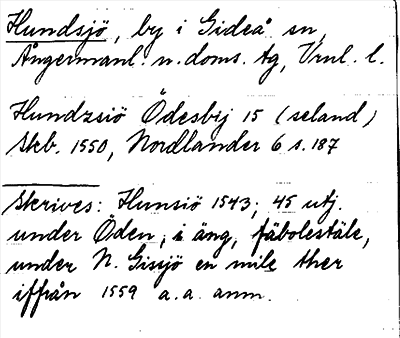 Hundsjö, by i Gideå sn,
Ångermanl. n. doms. tg, Vrnl. l.
Hundzsiö Ödesbij 15 (seland)
Skb. 1550, Nordlander 6 s. 187
Skrives: Hunsiö 1543; 45 utj.
under Öden; i äng, fäbolestäle,
under N. Gissjö en mile ther
iffrån 1559 a. a. anm.